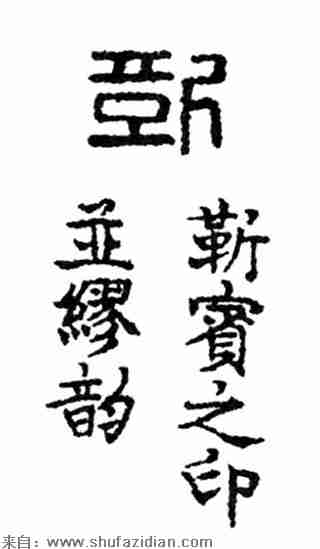 靳賓之印
並繆韵
来自：www.shufazidian.com